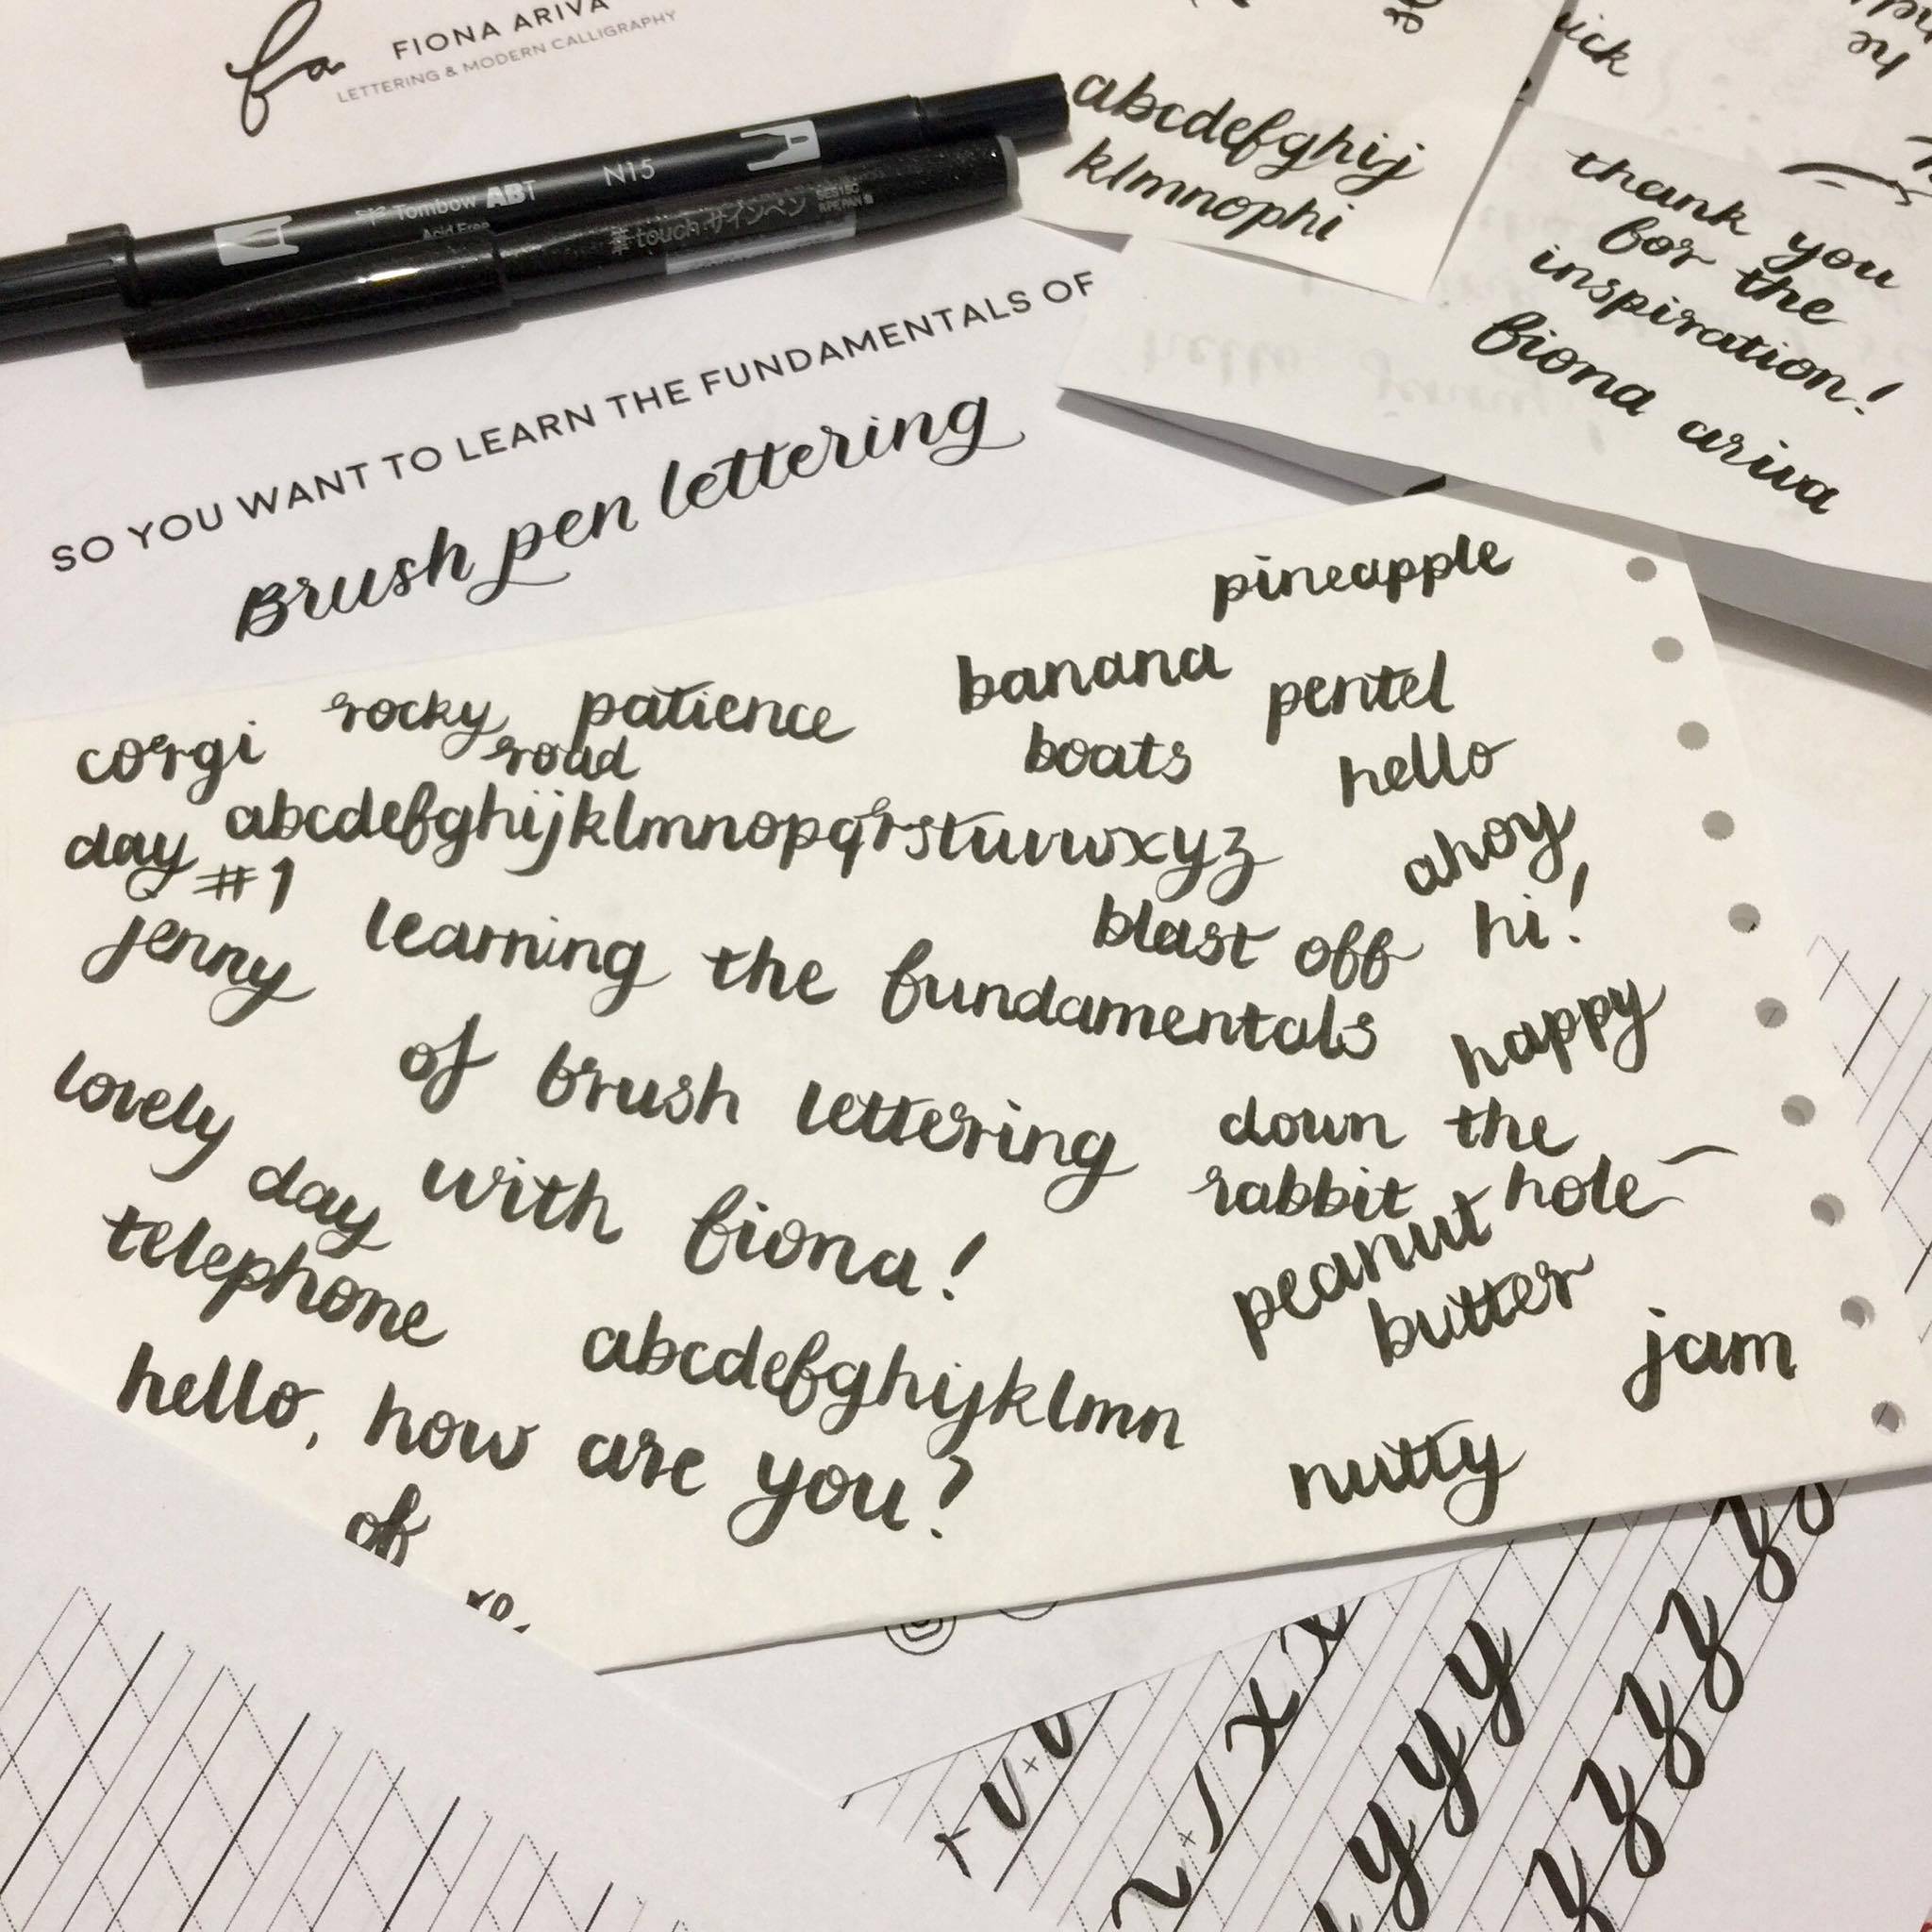 fa
FIONA ARIVA
LETTERING & MODERN CALLIGRAPHY
Tombow ABT
N15
Acid Free
筆touch サインペン
SES15C
abcdefghij
klmnophi
thank you
for the
inspiration!
fiona ariva
SO YOU WANT TO LEARN THE FUNDAMENTALS OF
Brush pen lettering
pineapple
banana
pentel
corgi
rocky
road
patience
boats
hello
abcdefghijklmnopqrstuvwxyz
ahoy
day #1
jenny
blast off
hi!
learning the fundamentals
happy
of brush lettering
lovely
day
down the
rabbit hole
with fiona!
telephone
peanut
butter
jam
abcdefghijklmn
hello, how are you?
nutty
of
v v
x x x
y y y
z z z z z